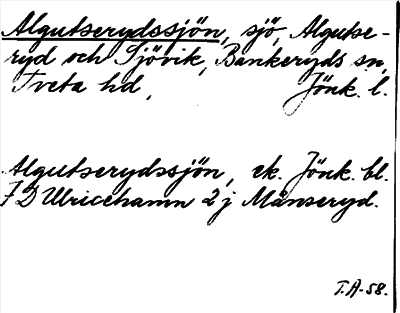 Algutserydssjön, sjö, Algutse-
ryd och Sjövik, Bankeryds sn,
Tveta hd, Jönk. l.
Algutserydssjön, ek. Jönk. bl.
7 D Ulricehamn 2 j Månseryd.
T.A-58.